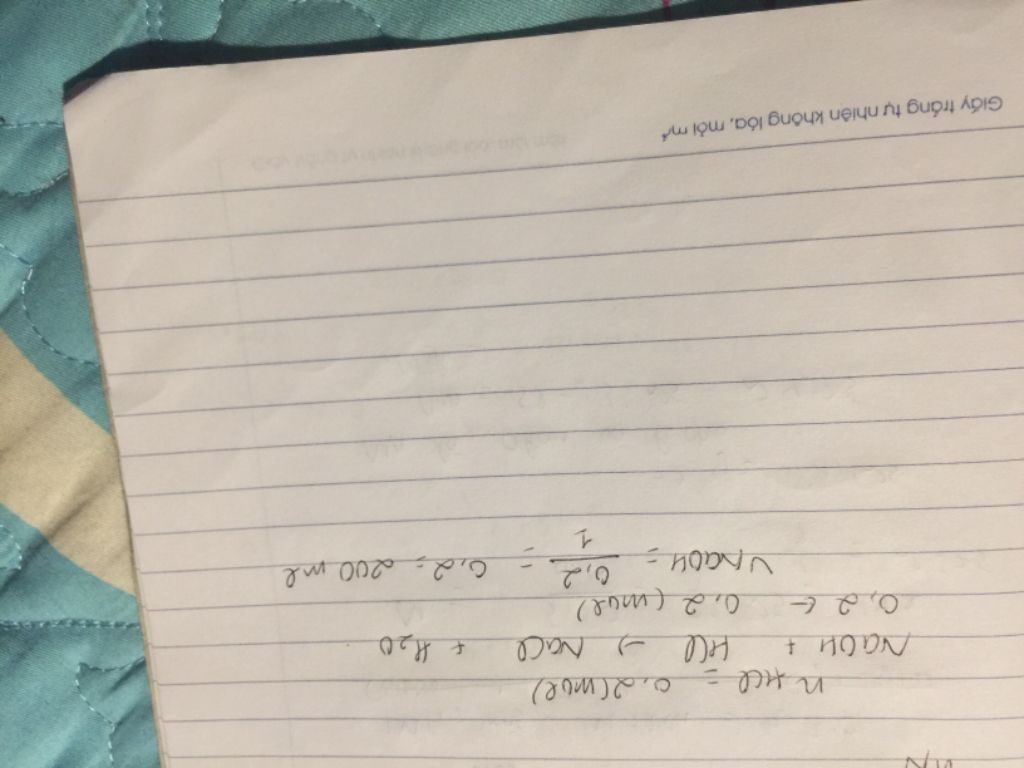 n HCl = 0,2 (mol)
NaOH + HCl → NaCl + H2O
0,2 ← 0,2 (mol)
VNaOH = 0,2/1 = 0,2 = 200 ml
Giấy trắng tự nhiên không lóa, mỏi mắt